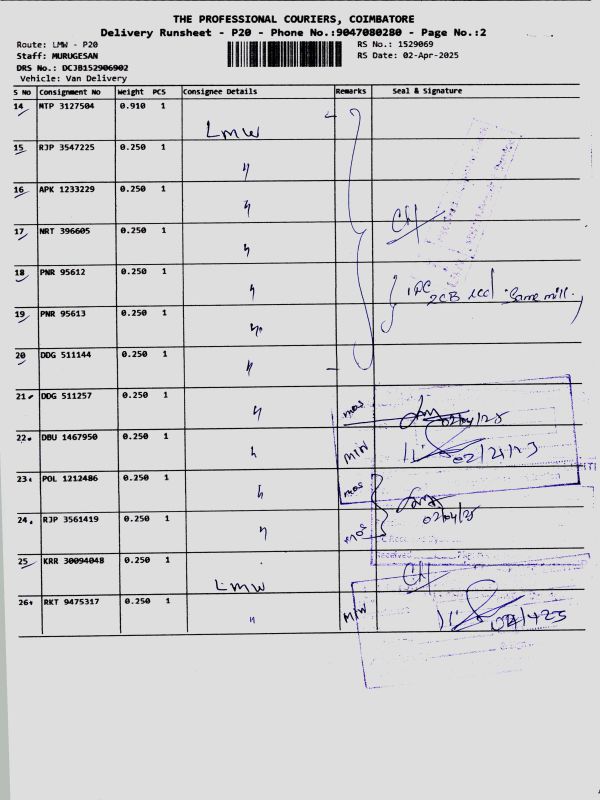 THE PROFESSIONAL COURIERS, COIMBATORE
Delivery Runsheet - P20 - Phone No.:9047080280 - Page No.:2
Route: LMW - P20
RS No.: 1529069
Staff: MURUGESAN
RS Date: 02-Apr-2025
DRS No.: DCJB152906902
Vehicle: Van Delivery
S No Consignment No Weight PCS Consignee Details Remarks Seal & Signature
14 MTP 3127504 0.910 1 LMW
15 RJP 3547225 0.250 1 "
16 APK 1233229 0.250 1 "
17 NRT 396605 0.250 1 "
18 PNR 95612 0.250 1 "
19 PNR 95613 0.250 1 "
20 DDG 511144 0.250 1 "
21 DDG 511257 0.250 1 " mos 02/04/25
22 DBU 1467950 0.250 1 " MIW
23 POL 1212486 0.250 1 " mos
02/04/25
24 RJP 3561419 0.250 1 " mos
25 KRR 30094048 0.250 1 LMW
26 RKT 9475317 0.250 1 " MIW